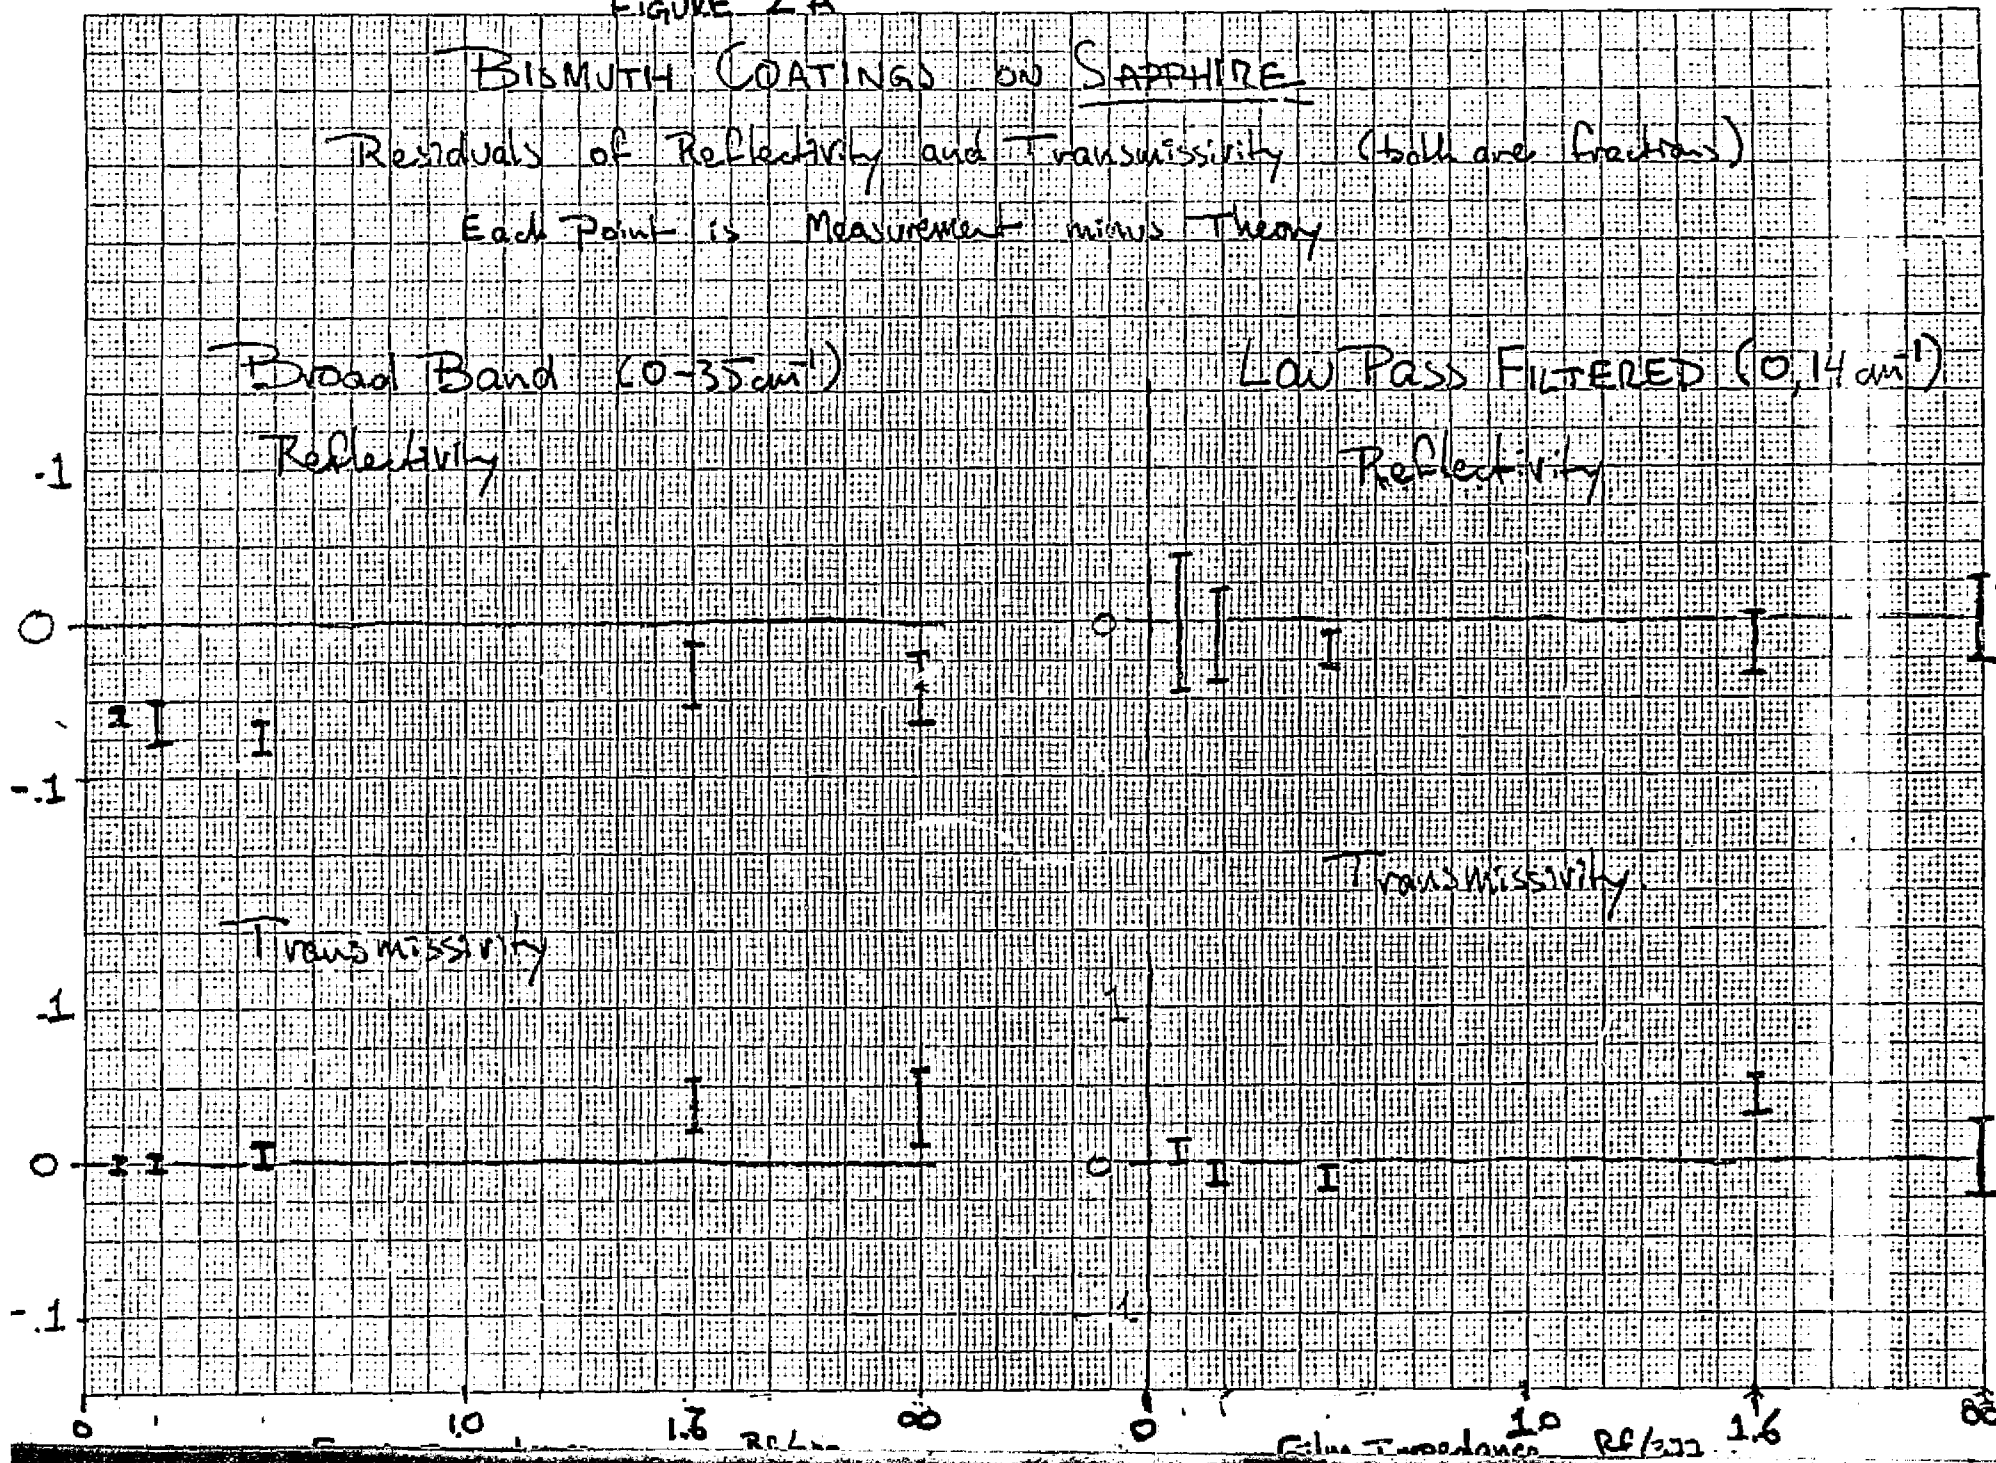 FIGURE 2B
BISMUTH COATINGS ON SAPPHIRE
Residuals of Reflectivity and Transmissivity (both are fractions)
Each Point is Measurement minus Theory
Broad Band (0-35 cm⁻¹)
LOW PASS FILTERED (0,14 cm⁻¹)
Reflectivity
Reflectivity
.1
0
0
-.1
Transmissivity
Transmissivity
.1
.1
0
0
-.1
-.1
0 1.0 1.6 ∞ 0 1.0 1.6 ∞
Film Impedance Rf/377